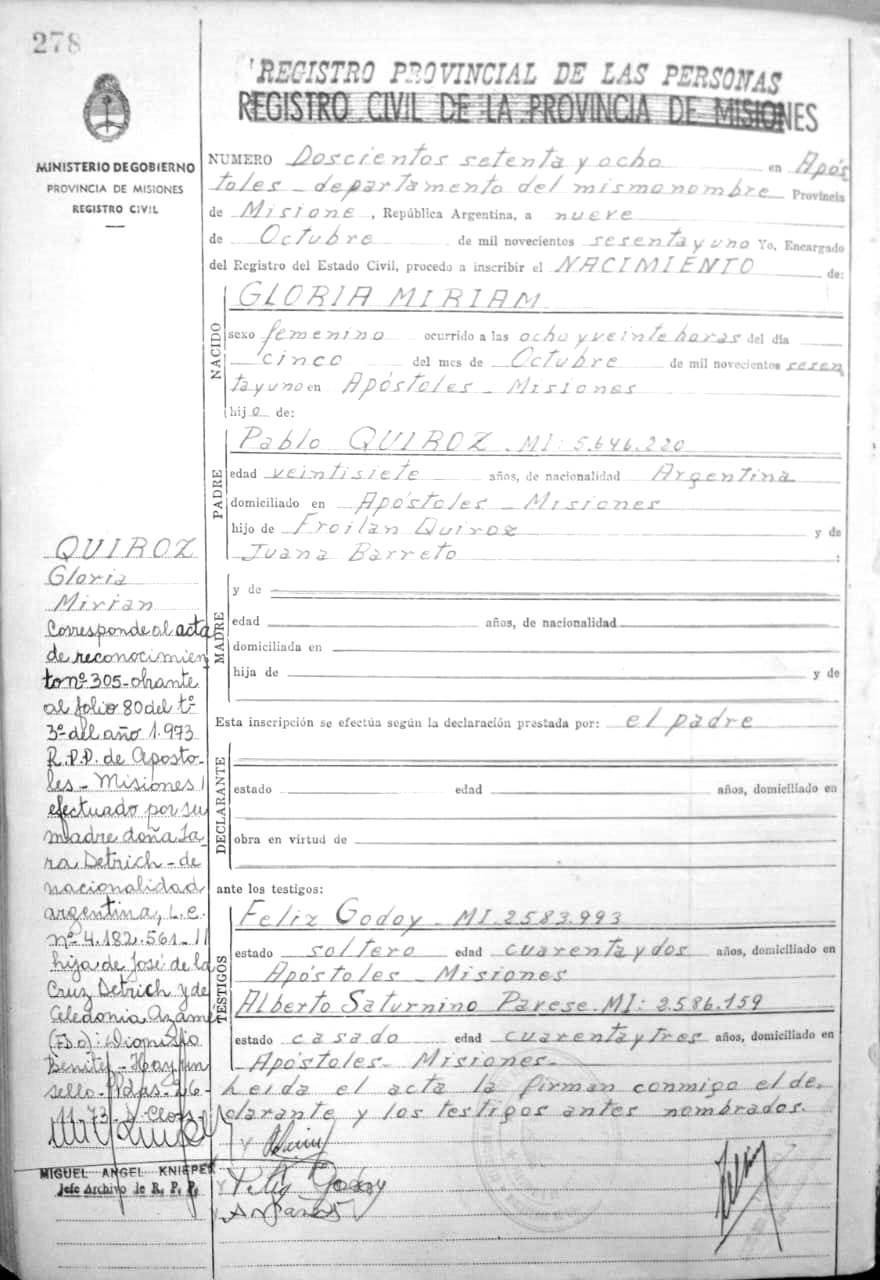 278
REGISTRO PROVINCIAL DE LAS PERSONAS
REGISTRO CIVIL DE LA PROVINCIA DE MISIONES
MINISTERIO DE GOBIERNO
PROVINCIA DE MISIONES
REGISTRO CIVIL
NUMERO Doscientos setenta y ocho en Após
toles - departamento del mismo nombre Provincia
de Misione, República Argentina, a nueve
de Octubre de mil novecientos sesenta y uno Yo, Encargado
del Registro del Estado Civil, procedo a inscribir el NACIMIENTO de:
NACIDO
GLORIA MIRIAM
sexo femenino ocurrido a las ocho y veinte horas del día
cinco del mes de Octubre de mil novecientos sesen
ta y uno en Apóstoles - Misiones
hija de:
PADRE
Pablo QUIROZ - MI: 5.646.220
edad veintisiete años, de nacionalidad Argentina
domiciliado en Apóstoles - Misiones
hijo de Froilan Quiroz y de
Juana Barreto :
MADRE
y de
edad años, de nacionalidad
domiciliada en
hija de y de
Esta inscripción se efectúa según la declaración prestada por: el padre
DECLARANTE
estado edad años, domiciliado en
obra en virtud de
ante los testigos:
TESTIGOS
Feliz Godoy - MI. 2583.993
estado soltero edad cuarenta y dos años, domiciliado en
Apóstoles - Misiones
Alberto Saturnino Parese - MI: 2.586.159
estado casado edad cuarenta y tres años, domiciliado en
Apóstoles - Misiones -
Leida el acta la firman conmigo el de-
clarante y los testigos antes nombrados.
Feliz Godoy
QUIROZ
Gloria
Mirian
Corresponde al acta
de reconocimien
to nº 305 - obrante
al folio 80 del tº
3º del año 1.973
R.P.P. de Aposto-
les - Misiones
efectuado por su
madre doña Sa-
ra Detrich - de
nacionalidad
argentina, L.C.
nº 4.182.561 -
hija de José de la
Cruz Detrich y de
Celedonia
(Fdo): Dionisio
Benitez - Hay un
sello - Pdas - 26 -
73 -
MIGUEL ANGEL KNIEPER
Jefe Archivo de R. P. P.